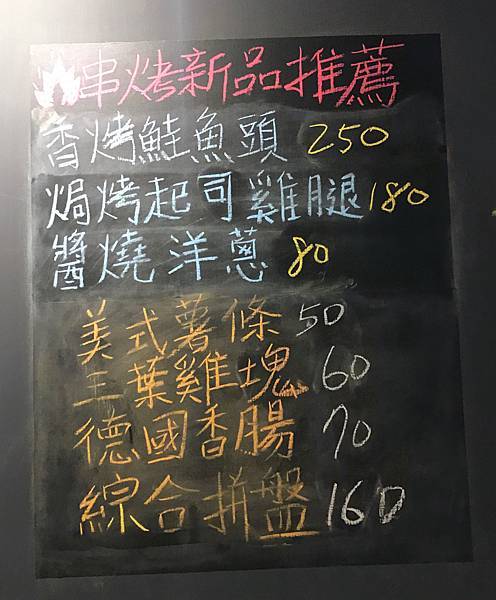 串烤新品推薦
香烤鮭魚頭 250
焗烤起司雞腿180
醬燒洋蔥 80
美式薯條50
三葉雞塊 60
德國香腸 70
綜合拼盤160